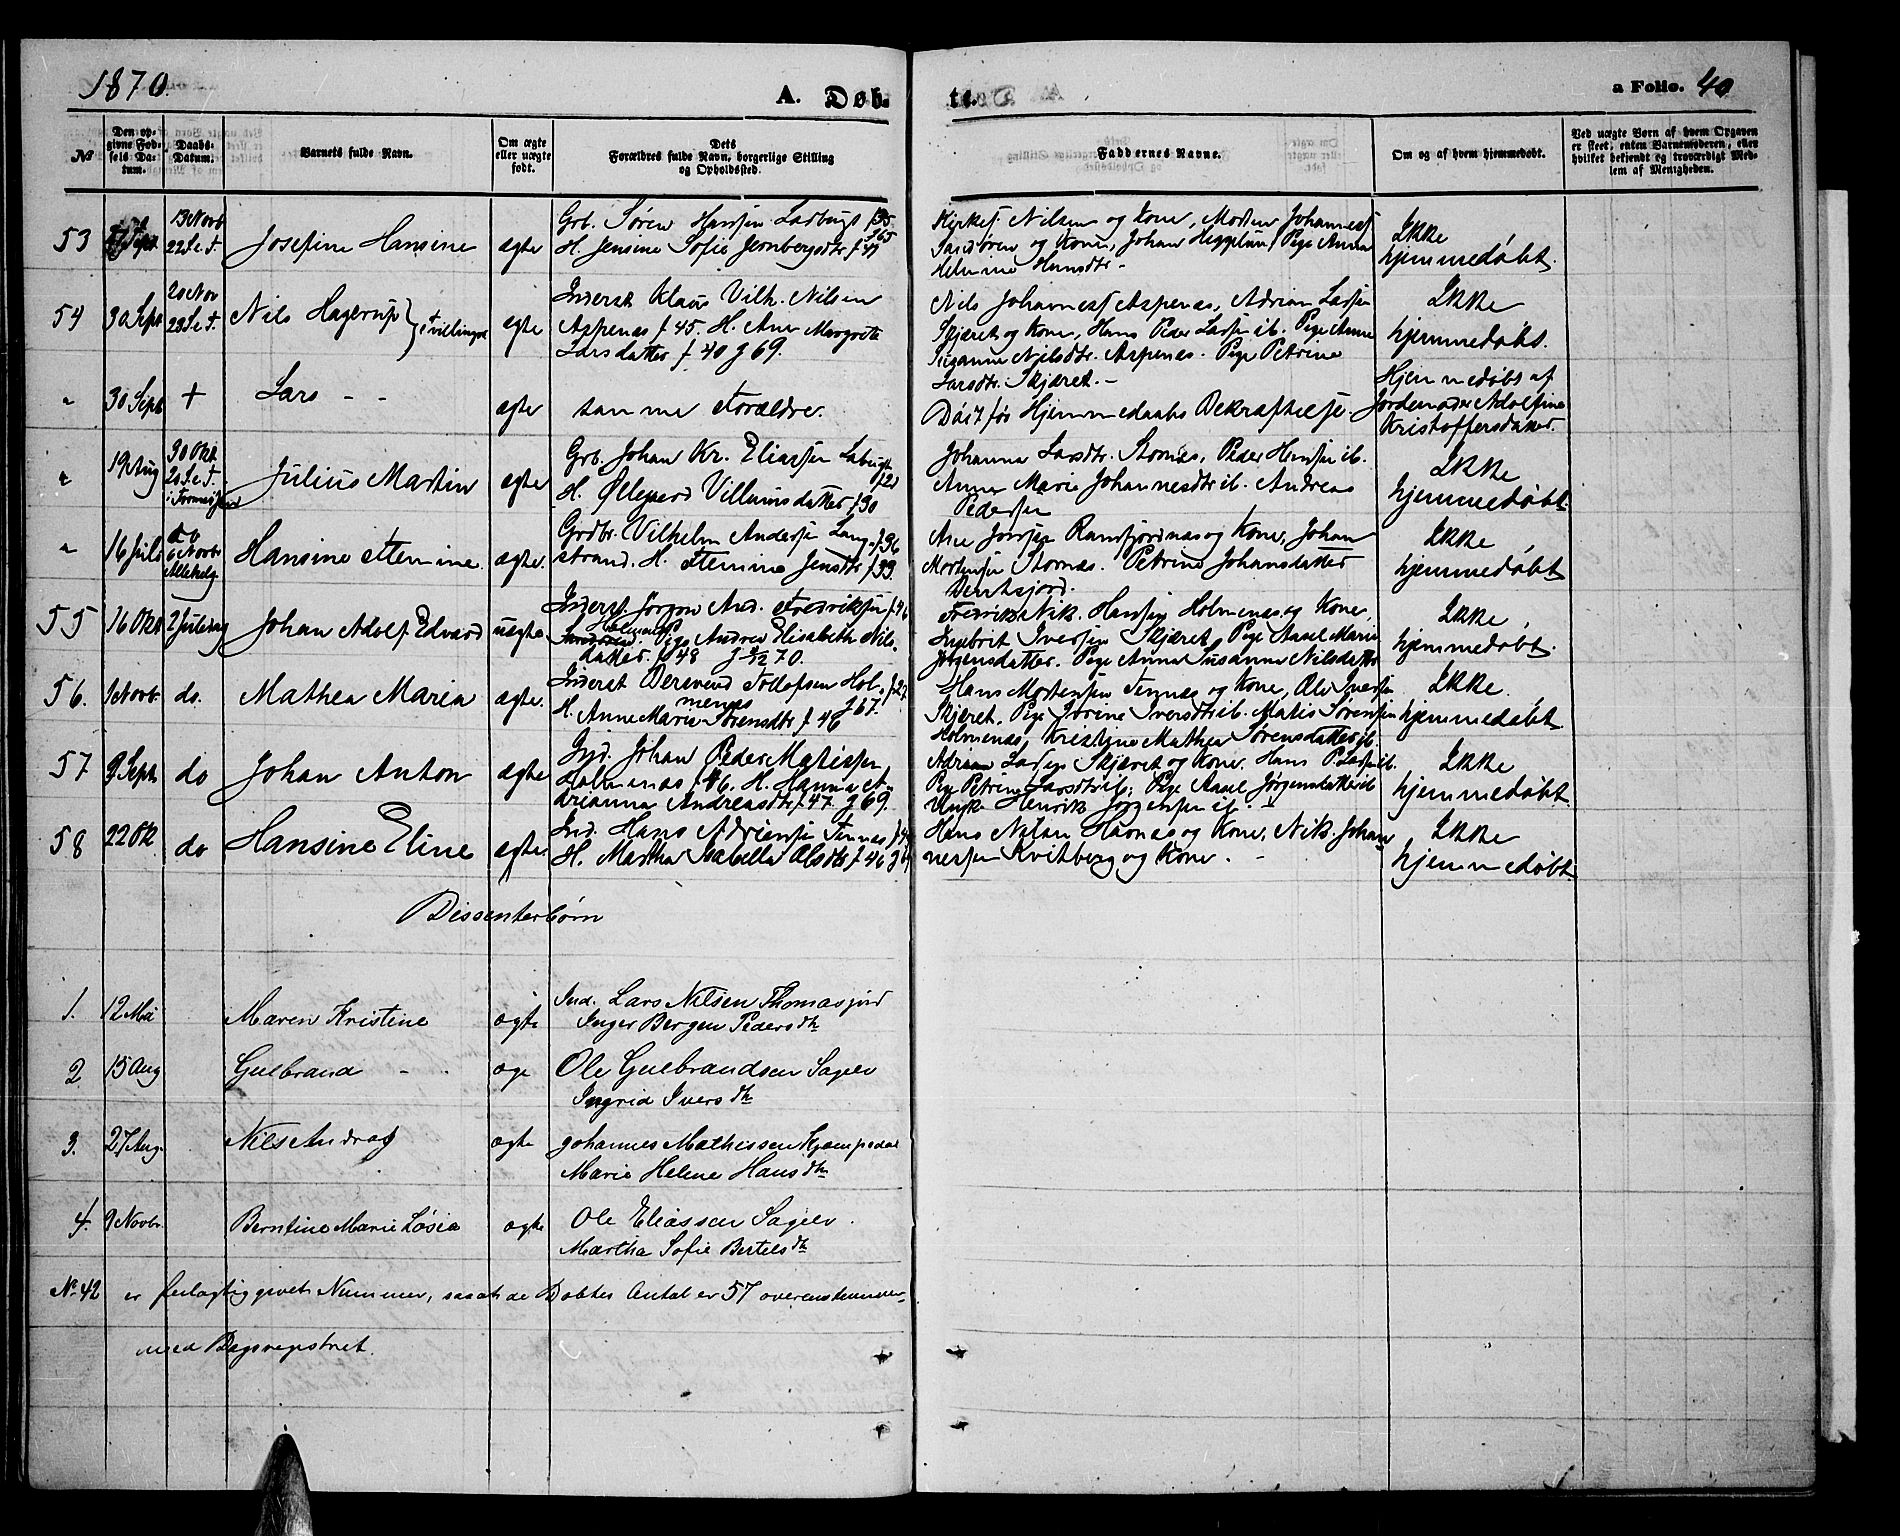 1870.
A. Døb-
te.
a Folio. 40
№
Den op-
givne Fød-
sels Da-
tum.
Daabs-
Datum.
Barnets fulde Navn.
Om ægte
eller uægte
født.
Dets
Forældres fulde Navn, borgerlige Stilling
og Opholdssted.
Faddernes Navne.
Om og af hvem hjemmedøbt.
Ved uægte Børn af hvem Opgaven
er skeet, enten Barnemoderen, eller
hvilket bekjendt og troværdigt Med-
lem af Menigheden.
53
Sept.
13 Novb
22 S. e. T.
Josefine Hansine
ægte
Grb. Søren Hansen f 35
H. Jensine Sofie f 41
Nilsen og Kone, Morten Johannes
og Kone, Johan Pige Anna
Helmine Hansdtr. -
Ikke
hjemmedøbt.
54
30 Sept
20 Nov
23 S. e. T.
Nils Hagerup } tvillinger
ægte
Inderst Klaus Vilh. Nilsen
Aspenæs f 45. H. Ane Margrete
Larsdatter f 40 g 69.
Nils Johannes Aspenæs, Adrian Larsen
Skjæret og Kone, Hans Peder Larsen ib. Pige Anne
Susanne Nilsdtr. Aspenæs. Pige Petrine
Larsdtr. Skjæret. -
Ikke
hjemmedøbt.
"
30 Sept
+
Lars - -
ægte
samme Forældre.
Død før Hjemmedaabs Bekræftelse
Hjemmedøbt af
Jordemoder Adolfine
Kristoffersdatter.
"
19 Aug
30 Okt
20 S. e. T.
Julius Martin
ægte
Grb. Johan Kr. Eliassen
H. Øllegaard Villumsdatter f 30
Johanna Larsdtr. Stornæs, Peder Hansen ib.
Anne Marie Johannesdtr ib. Andreas
Pedersen
Ikke
hjemmedøbt.
"
16 Juli
6 Novbr
Allehelg
Hansine Hemine
ægte.
Grdbr. Vilhelm Andersen Lang- f 36
strand. H. Hemine Jensdtr f 33.
Ramfjordnæs og Kone, Johan
Mortensen Stornæs. Petrine Johansdatter
Ikke
hjemmedøbt
55
16 Okt
2 Juledag
Johan Adolf Edvard
uægte
Inderst Jørgen And. Fredriksen f 46
Holmenæs Pige Andrea Elisabeth Nils-
datter f 48
Fredrik Nik. Hansen Holmenæs og Kone,
Ingebrit Iversen Skjæret, Pige Aasel Marie
Jørgensdatter. Pige Anna Susanna Nilsdatter
Ikke
hjemmedøbt.
56.
1 Novbr.
do.
Mathea Maria
ægte.
Inderst Berevend Tollofsen Hol- f 27
menæs g 67.
H. Anne Marie Sørensdtr f 46
Hans Mortensen Tennæs og Kone, Ole Iversen
Skjæret, Pige Jorine Iversdtr ib. Matis Sørensen
Holmenæs, Kristine Mathea Sørensdatter ib.
Ikke
hjemmedøbt
57
9 Sept
do
Johan Anton
ægte
Ind. Johan Peder Matissen
Holmenæs f 46. H. Hanna A-
drianna Andreasdtr f 47. g 69.
Adrian Larsen Skjæret og Kone, Hans P. Larsen ib.
Pige Petrine Larsdtr ib; Pige Aasel Jørgensdatter ib
Ungk. Henrik Jørgensen ib.
Ikke
hjemmedøbt.
58
22 Ok
do
Hansine Eline
ægte.
Ind. Hans Adriansen Tennæs
H. Martha Isabella Olsdtr f 46
Hans Nilsen Havnæs og Kone, Nik. Johan
nessen Kvitberg og Kone. -
Ikke
hjemmedøbt.
Dissenterbørn
1.
12 Mai
Maren Kristine
ægte
Ind. Lars Nilsen Thomasjord
Inger Bergen Pedersdtr
2
15 Aug
Gulbrand - -
æge
Ole Gulbrandsen Sagelv
Ingrid Iversdtr
3.
27 Aug.
Nils Andras
ægte
Johannes Mathissen Kjempedal
Marie Helene Hansdtr
4.
9 Novbr.
Berntine Marie Løsia
ægte
Ole Eliassen Sagelv.
Martha Sofie Bertelsdtr
No 42 er feilagtig givet Nummer, saa at de Døbtes Antal er 57 overensstemmer-
med Dagsregistret.